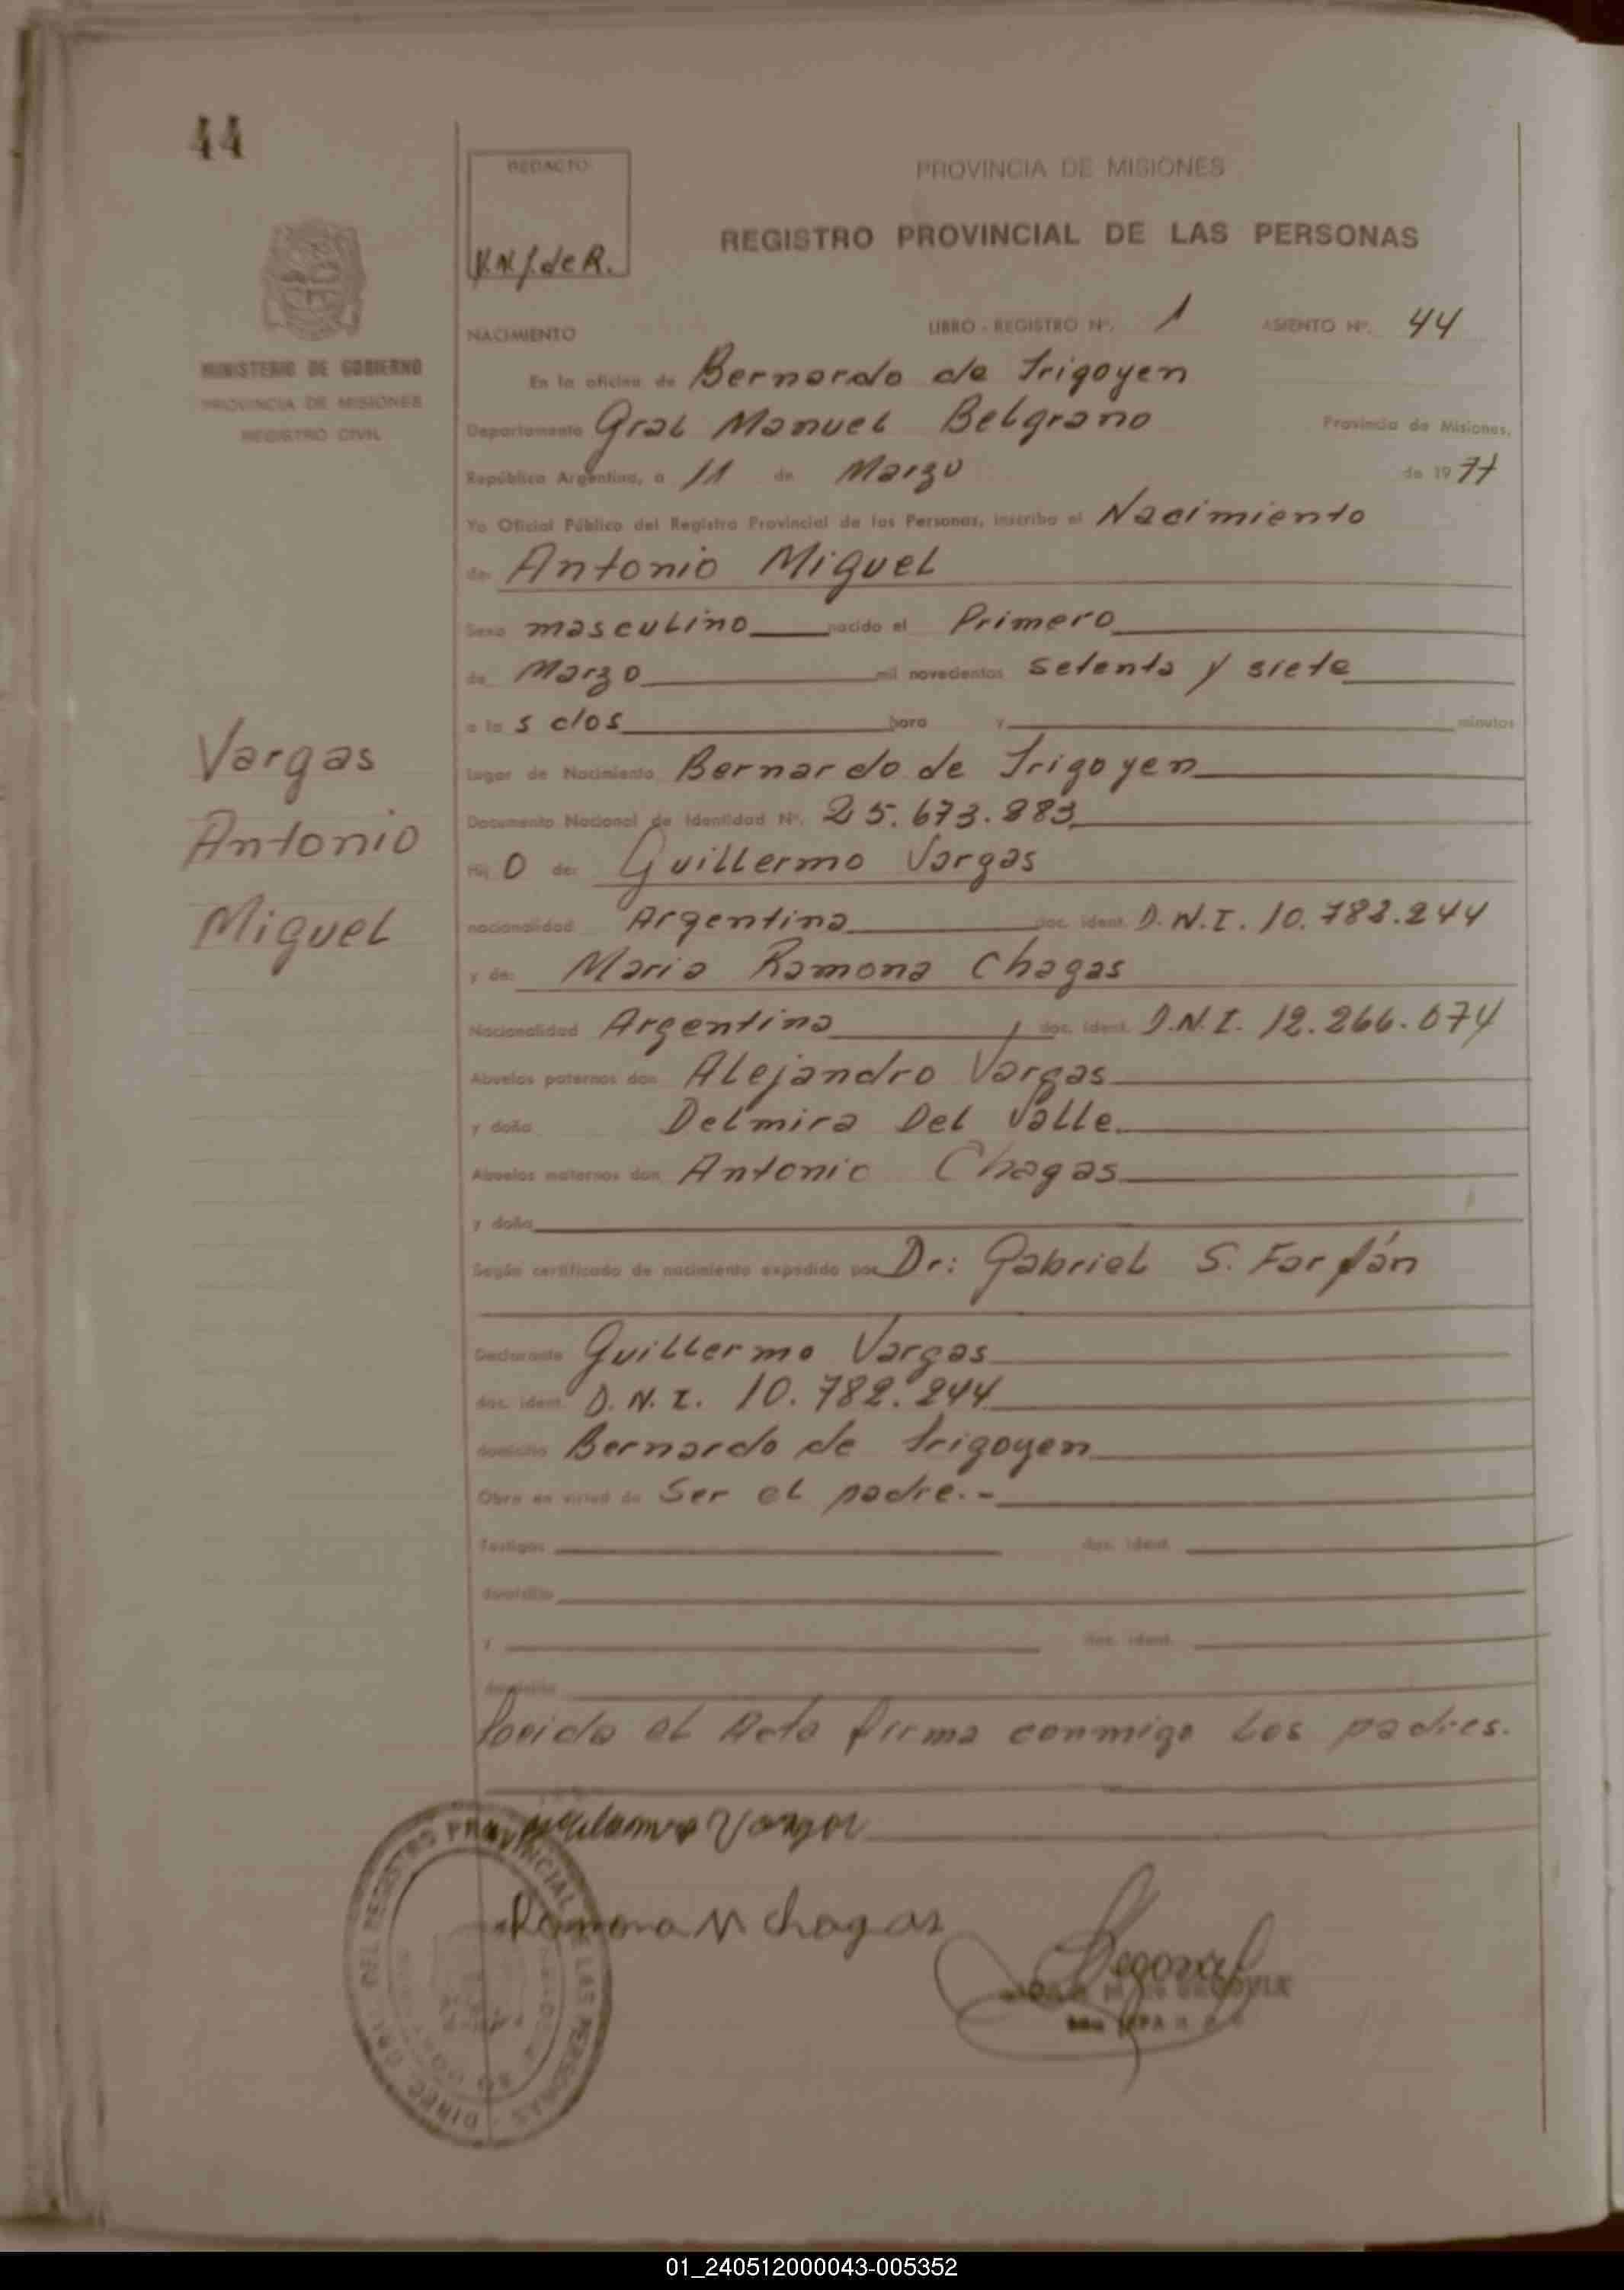 44
REDACTO
PROVINCIA DE MISIONES
REGISTRO PROVINCIAL DE LAS PERSONAS
MINISTERIO DE GOBIERNO
PROVINCIA DE MISIONES
REGISTRO CIVIL
NACIMIENTO LIBRO - REGISTRO Nº. 1 ASIENTO Nº. 44
En la oficina de Bernardo de Irigoyen
Departamento Gral Manuel Belgrano Provincia de Misiones,
República Argentina, a 11 de Marzo de 1977
Yo Oficial Público del Registro Provincial de las Personas, inscribo el Nacimiento
de: Antonio Miguel
Sexo masculino nacido el Primero
de Marzo mil novecientos setenta y siete
a las dos hora y minutos
Vargas
Antonio
Miguel
Lugar de Nacimiento Bernardo de Irigoyen
Documento Nacional de Identidad Nº. 25.673.883
Hij o de: Guillermo Vargas
nacionalidad Argentina doc. ident. D.N.I. 10.782.244
y de: Maria Ramona Chagas
Nacionalidad Argentina doc. ident. D.N.I. 12.266.074
Abuelos paternos don Alejandro Vargas
y doña Delmira Del Valle
Abuelos maternos don Antonio Chagas
y doña
Según certificado de nacimiento expedido por Dr: Gabriel S. Farfán
Declarante Guillermo Vargas
doc. ident. D.N.I. 10.782.244
domicilio Bernardo de Irigoyen
Obra en virtud de Ser el padre.-
Testigos doc. ident.
domicilio
y doc. ident.
domicilio
el Acta firma conmigo los padres.
Vargas
Ramona M Chagas
DIREC. GRL. DEL REGISTRO PROVINCIAL DE LAS PERSONAS
01_240512000043-005352